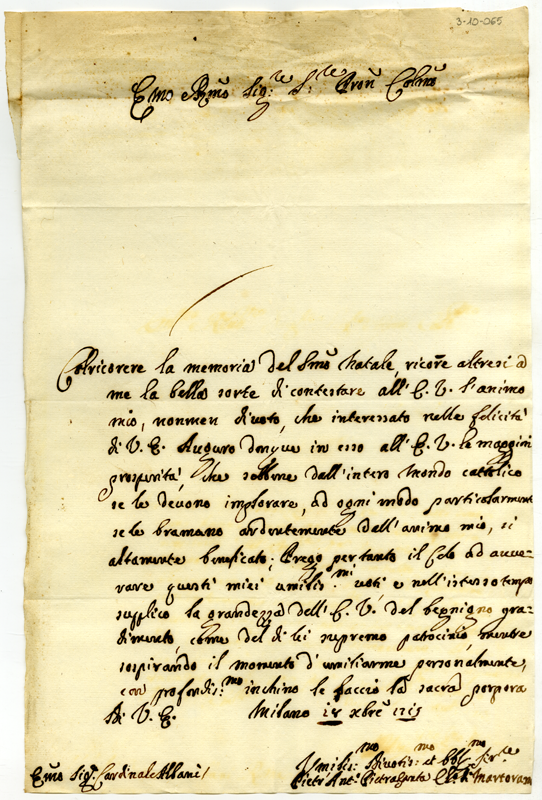 3-10-065
E.mo R.mo Sig.re S.re Pron Colmo
Col ricorere la memoria del S.mo Natale, ricorre altresi à
me la bella sorte di contestare all' E. V. l'animo
mio, nonmen divoto, che interessato nelle felicità
di V. E. Auguro donque in esso all' E. V. le maggiori
prosperità, che sebbene dall' intero Mondo cattolico
se le devono implorare, ad ogni modo particolarmente
se le bramano ardentemente dall' animo mio, si
altamente beneficato; Prego per tanto il Celo ad avve-
rare questi miei umilis.mi voti e nell' istesso tempo
supplico la grandezza dell' E. V. del begnigno gra-
dimento, come del di lei supremo patrocinio, mentre
sospirando il momento d'umiliarme personalmente,
con profondis.mo inchino le faccio la sacra porpora
Di V. E. Milano 18 xbre 1715
E.mo Sig.r Cardinale Albani/
Umilis.mo Divotis.mo et obbl.mo Ser.re
Pietr' Ant.o Pietrasanta